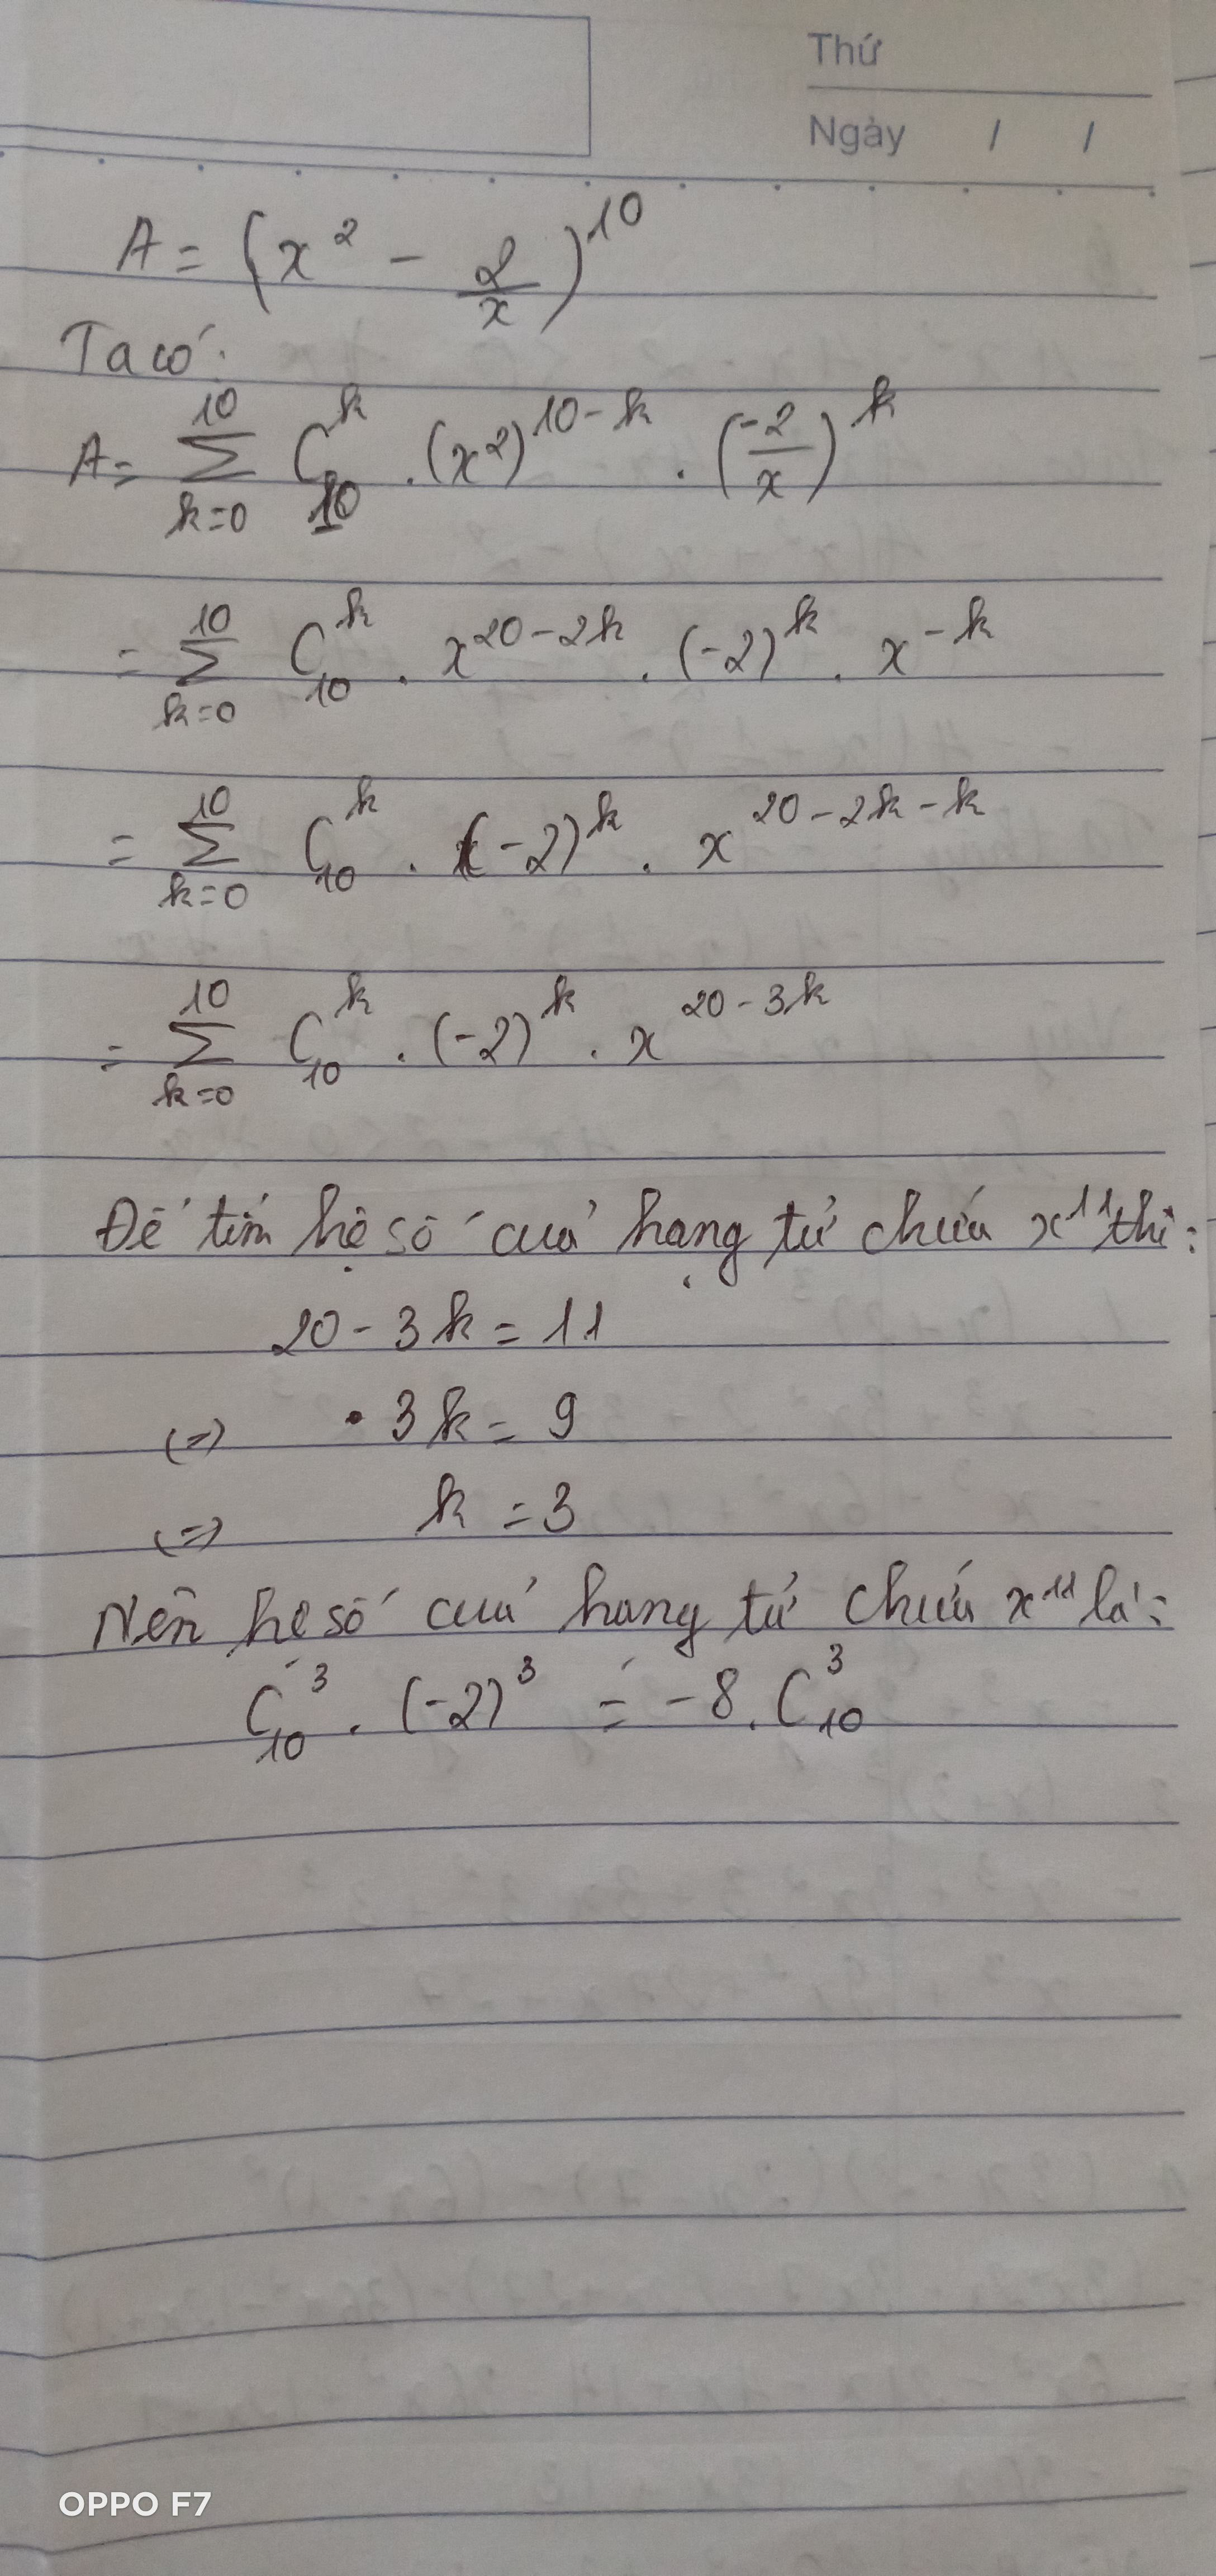 Thứ
Ngày / /
A = (x² - 2/x)¹⁰
Ta có:
A = ∑_{k=0}^{10} C_{10}^{k} . (x²)^{10-k} . (-2/x)^{k}
= ∑_{k=0}^{10} C_{10}^{k} . x^{20-2k} . (-2)^{k} . x^{-k}
= ∑_{k=0}^{10} C_{10}^{k} . (-2)^{k} . x^{20-2k-k}
= ∑_{k=0}^{10} C_{10}^{k} . (-2)^{k} . x^{20-3k}
Để tìm hệ số của hạng tử chứa x¹¹ thì:
20 - 3k = 11
(=) 3k = 9
(=) k = 3
Nên hệ số của hạng tử chứa x¹¹ là:
C_{10}^{3} . (-2)³ = -8 . C_{10}^{3}
OPPO F7